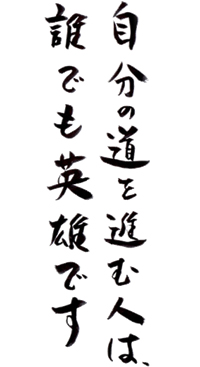 自分の道を進む人は、
誰でも英雄です